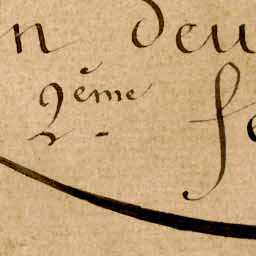 n deu
2ème fe